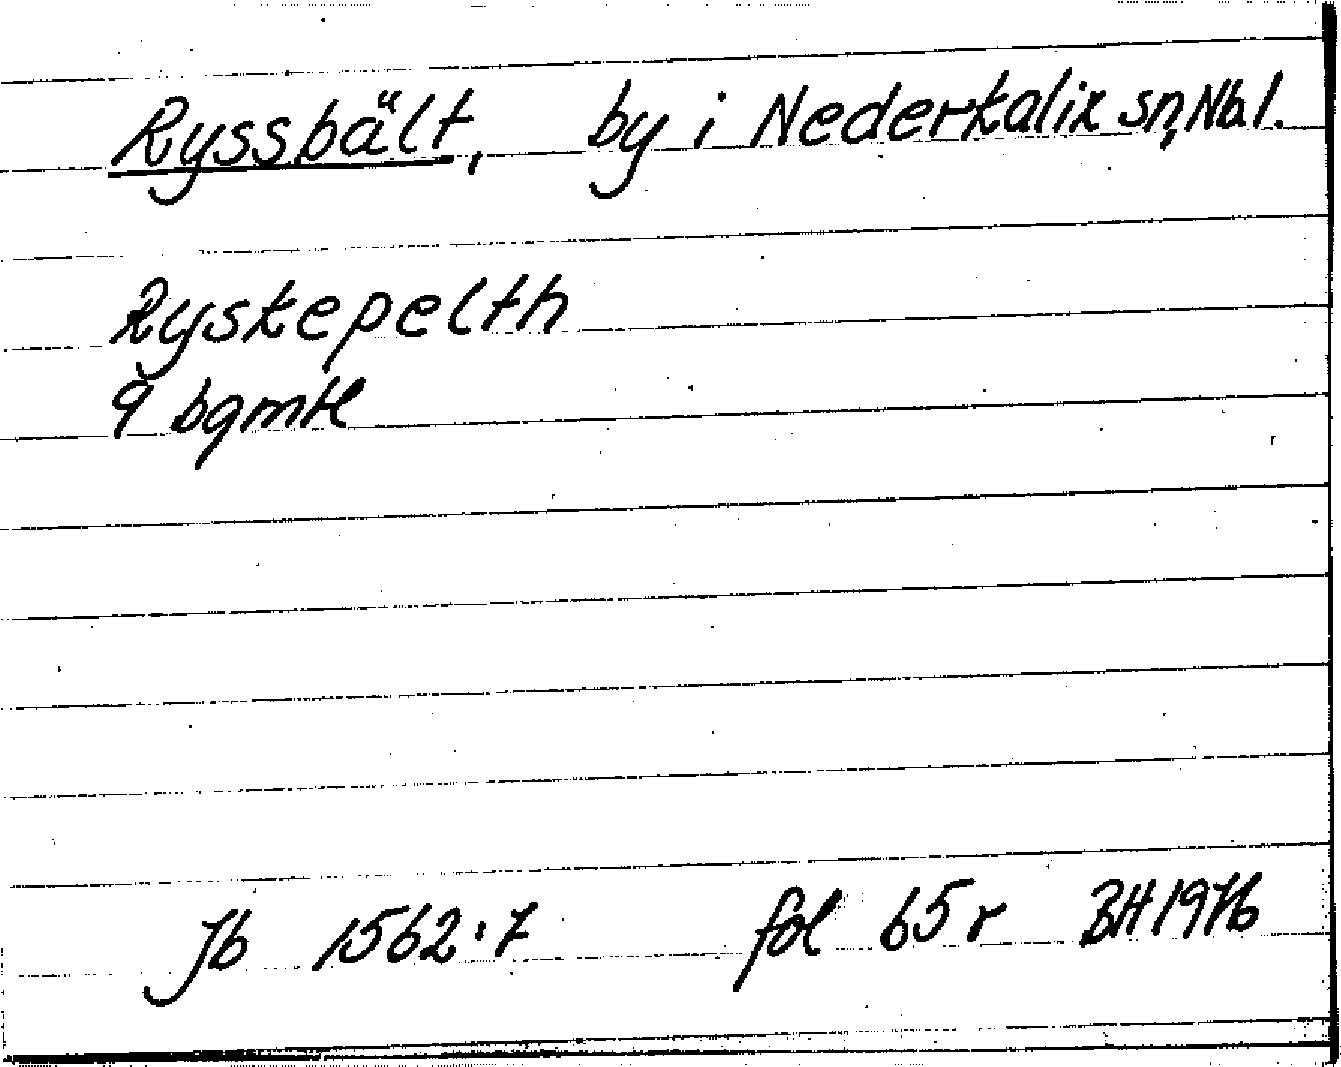 Ryssbält, by i Nederkalix sn, Nbl.
Ryskepelth
9 bgmtl
Jb 1562:7 fol 65 r BH 1976